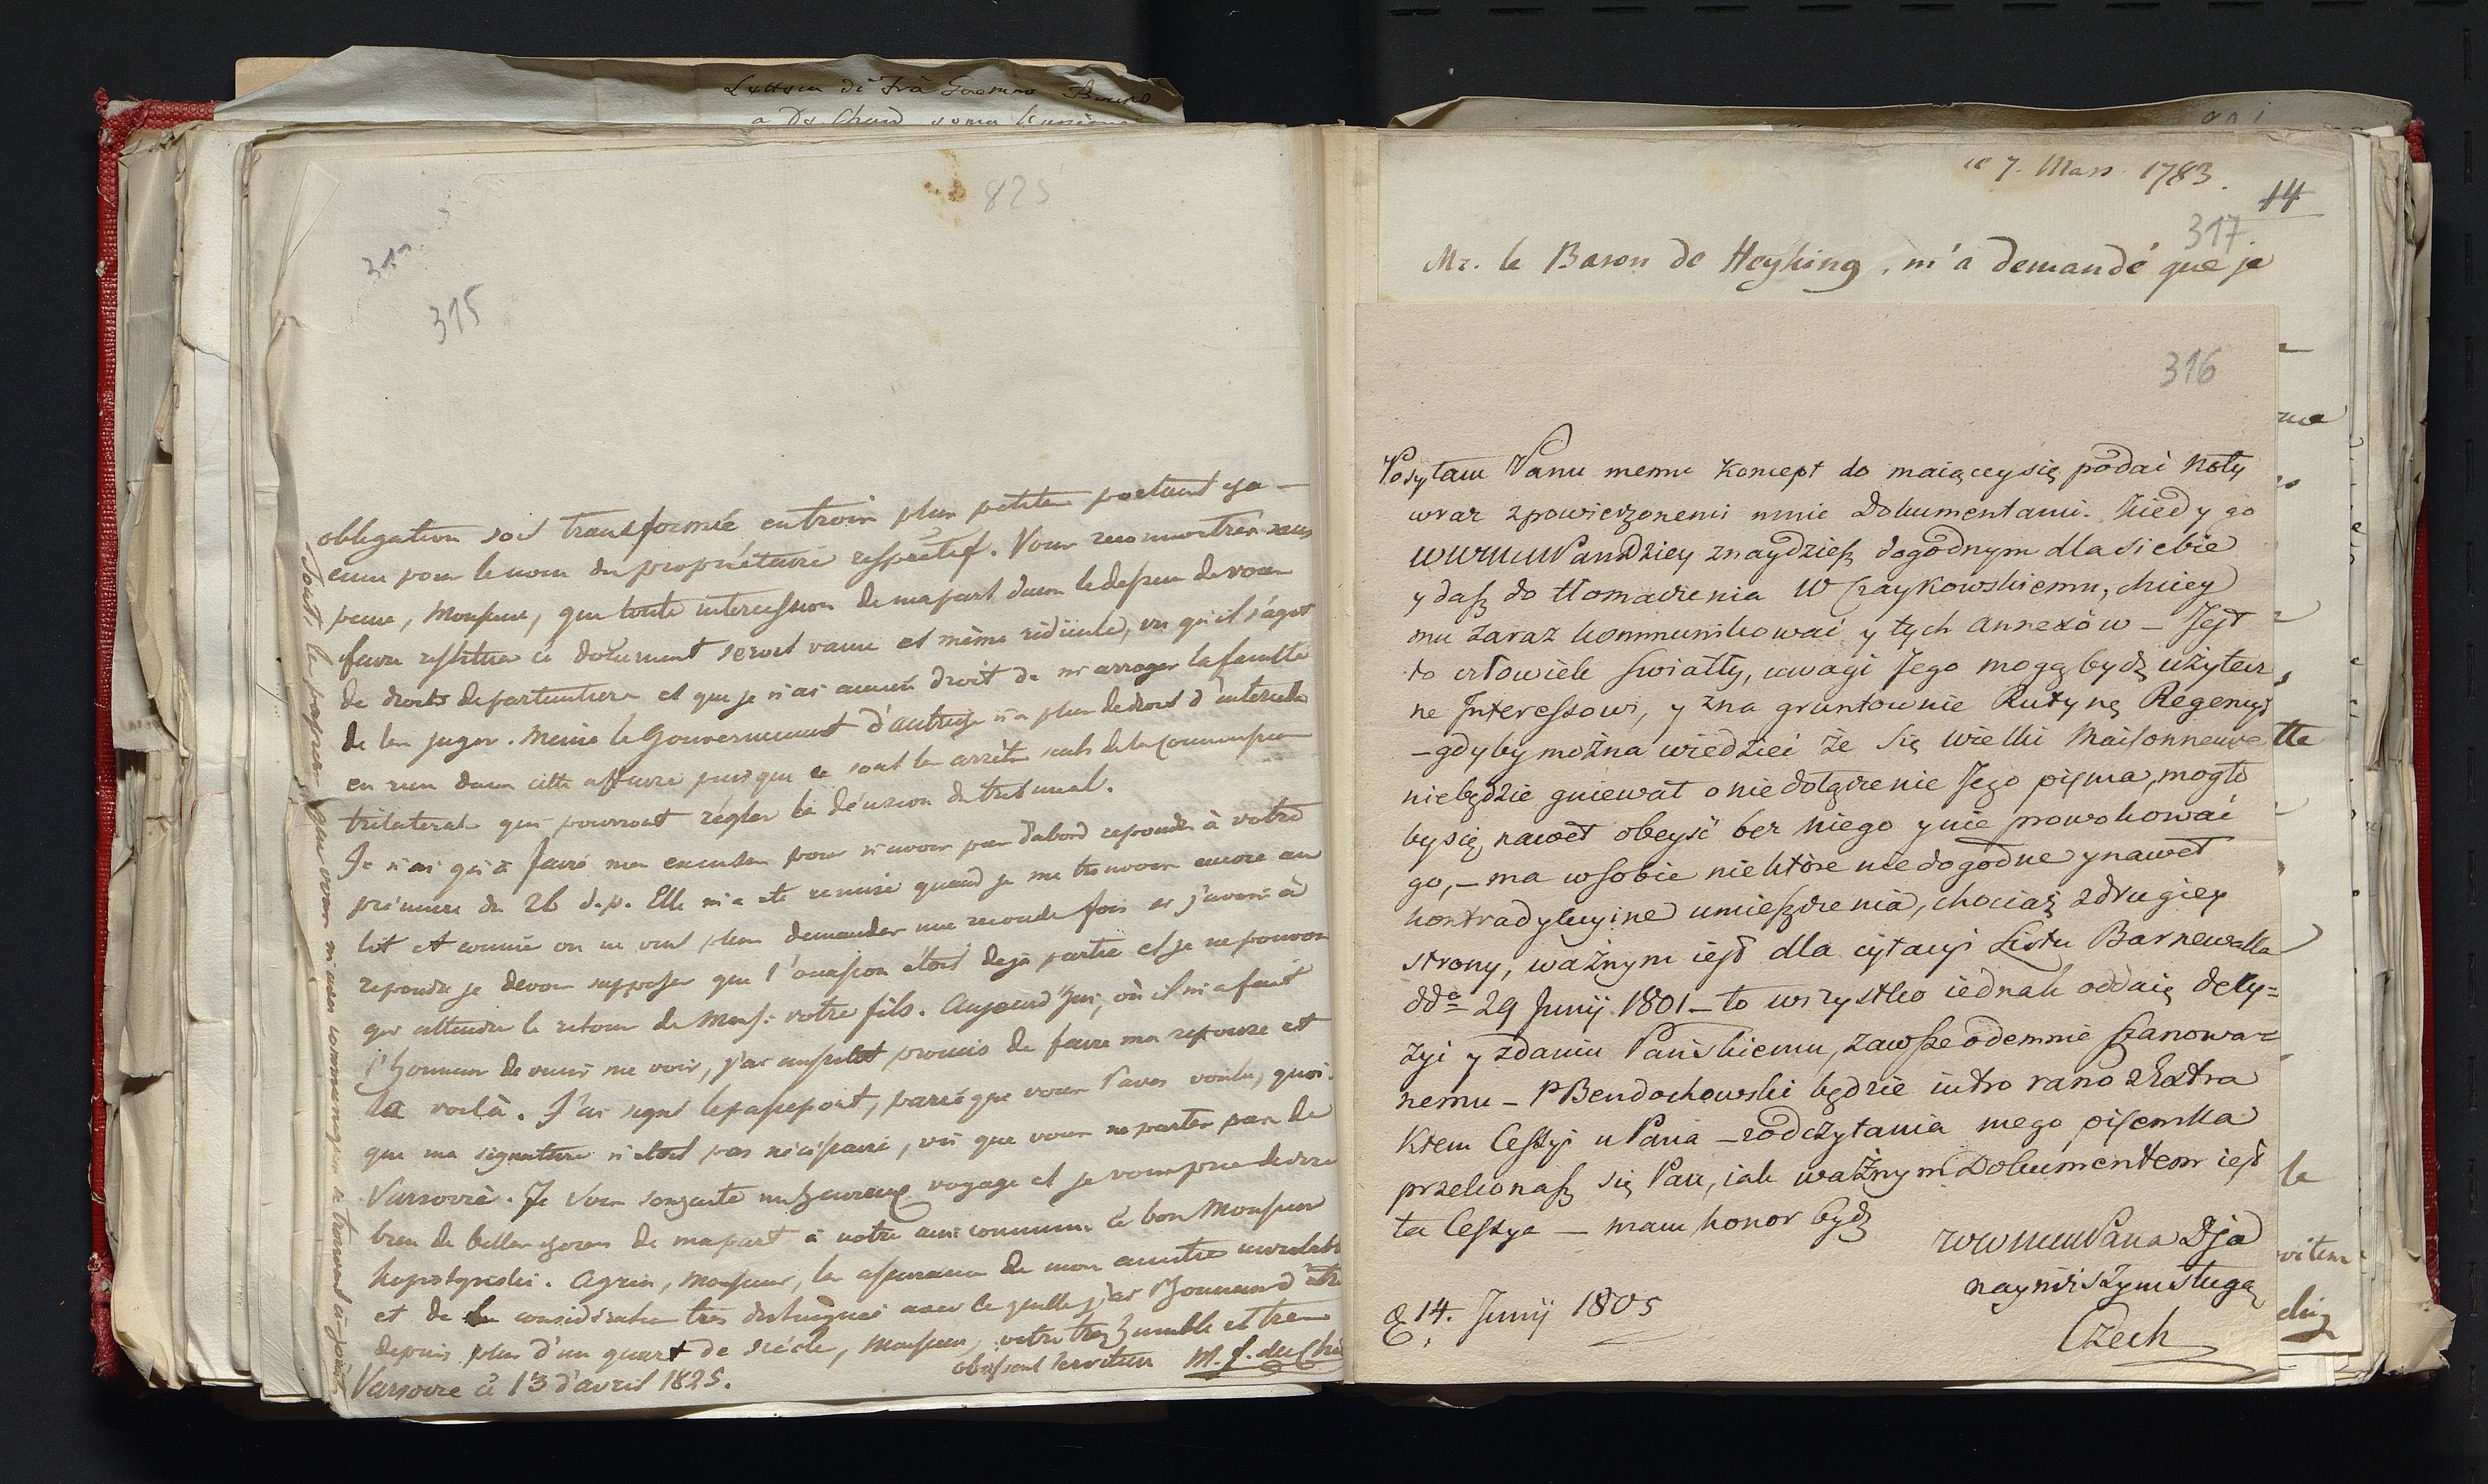 Lettera di Frà
825
315
obligation soit transformée en trois plus petites portant cha-
cune pour le nom du propriétaire respectif. Vous reconnoitrés sans
peine, Monsieur, que toute intercession de ma part dans le dessein de vous
faire restituer ce document seroit vaine et même ridicule, vu qu'il s'agit
de droits de particuliers et que je n'ai aucun droit de m'arroger la faculté
de les juger. Même le Gouvernement d'autriche n'a plus de droit d'
en rien dans cette affaire puisque ce sont les arrêts seuls de la Commission
trilaterale qui pourront régler la décision du tribunal.
Je n'ai qu'à faire mes excuses pour n'avoir pas d'abord repondu à votre
première du 26 d.p. Elle m'a été remise quand je me trouvois encore au
lit et comme on ne vint plus demander une seconde fois si j'avois à
repondre je devois supposer que l'occasion étoit deja partie et je ne pouvois
qu'attendre le retour de Mons: votre fils. Aujourd'hui, où il m'a fait
l'honneur de venir me voir, j'ai aussitôt promis de faire ma reponse et
la voilà. J'ai signé le passeport, parceque vous l'avés voulu, quoi-
que ma signature n'étoit pas nécessaire, vu que vous ne partés pas de
Varsovie. Je vous souhaite un heureux voyage et je vous prie de dire
bien de belles choses de ma part à notre ami commun le bon Monsieur
Agrées, Monsieur, les assurances de mon amitié inviolable
et de la consideration très distinguée avec laquelle j'ai l'honneur d'être
depuis plus d'un quart de siécle, Monsieur, votre très humble et très
obeissant serviteur
Varsovie ce 13 d'avril 1825.
Tous les papiers que vous m'avés communiqués se trouvent ci-joints
le 7. Mars 1783.
14
317
Mr. le Baron de Heyking, m'a demandé que je
316
Posyłam Panu memu Koncept do maiącey się podać Noty
wraz z powierzonemi mnie Dokumentami. Kiedy go
WWMMPanDziey znaydziesz dogodnym dla siebie
y dasz do tłomaczenia W Czaykowskiemu, chciey
mu zaraz kommunikować y tych Annexów – Jest
to człowiek światły, uwagi Jego mogą bydź użytecz
ne Interessowi, y zna gruntownie Rutynę Regencyi
– gdyby można wiedzieć że się wielki Maisonneuve
niebędzie gniewał o niedołączenie Jego pisma, mogło
by się nawet obeyść bez niego y nie prowokować
go, – ma w sobie niektóre niedogodne y nawet
kontradykcyine umieszczenia, chociaż z drugiey
strony, ważnym iest dla cytacyi Listu Barnewalla
dd° 29 Junij 1801 – to wszystko iednak oddaię decy=
zyi y zdaniu Pańskiemu, zawsze odemnie szanowa=
nemu – P Bendochowski będzie iutro rano z Extra
ktem Cessyi u Pana – z odczytania mego pisemka
przekonasz się Pan, iak ważnym Dokumentem iest
ta Cessya – mam honor bydź
WWMMPana Dja
nayniższym sługą
Czech
14. Junij 1805
tte
le